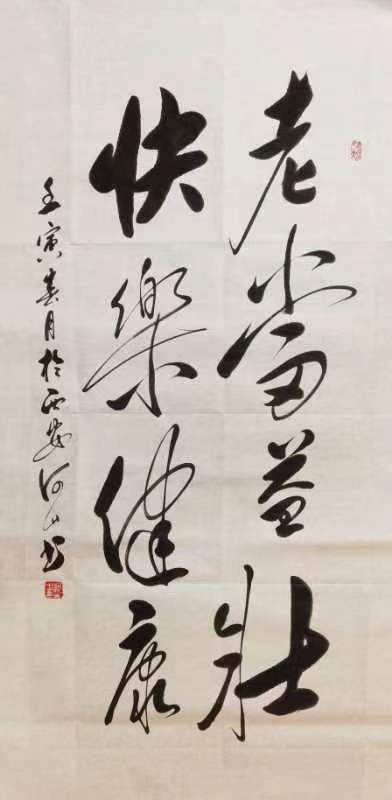 老當益壯
快樂健康
壬寅春月於西安河山書